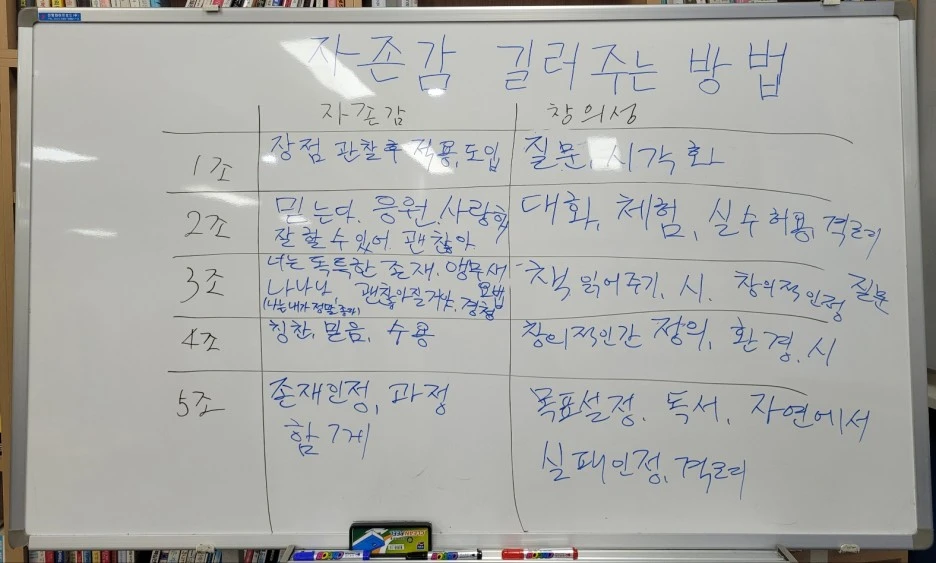 자존감 길러주는 방법
자존감 창의성
1조 장점 관찰후 적용, 도입 질문, 시각화
2조 믿는다. 응원. 사랑해 대화, 체험, 실수허용, 격려
잘할수있어 괜찮아
3조 너는 독특한 존재. 앵무새 책 읽어주기. 시. 창의적 인정 질문
나나나 괜찮아질거야. 요법
(나는 내가 정말 좋아) 경청
4조 칭찬, 믿음, 수용 창의적인간 정의, 환경, 시
5조 존재인정, 과정 목표설정. 독서, 자연에서
함께 실패인정, 격려